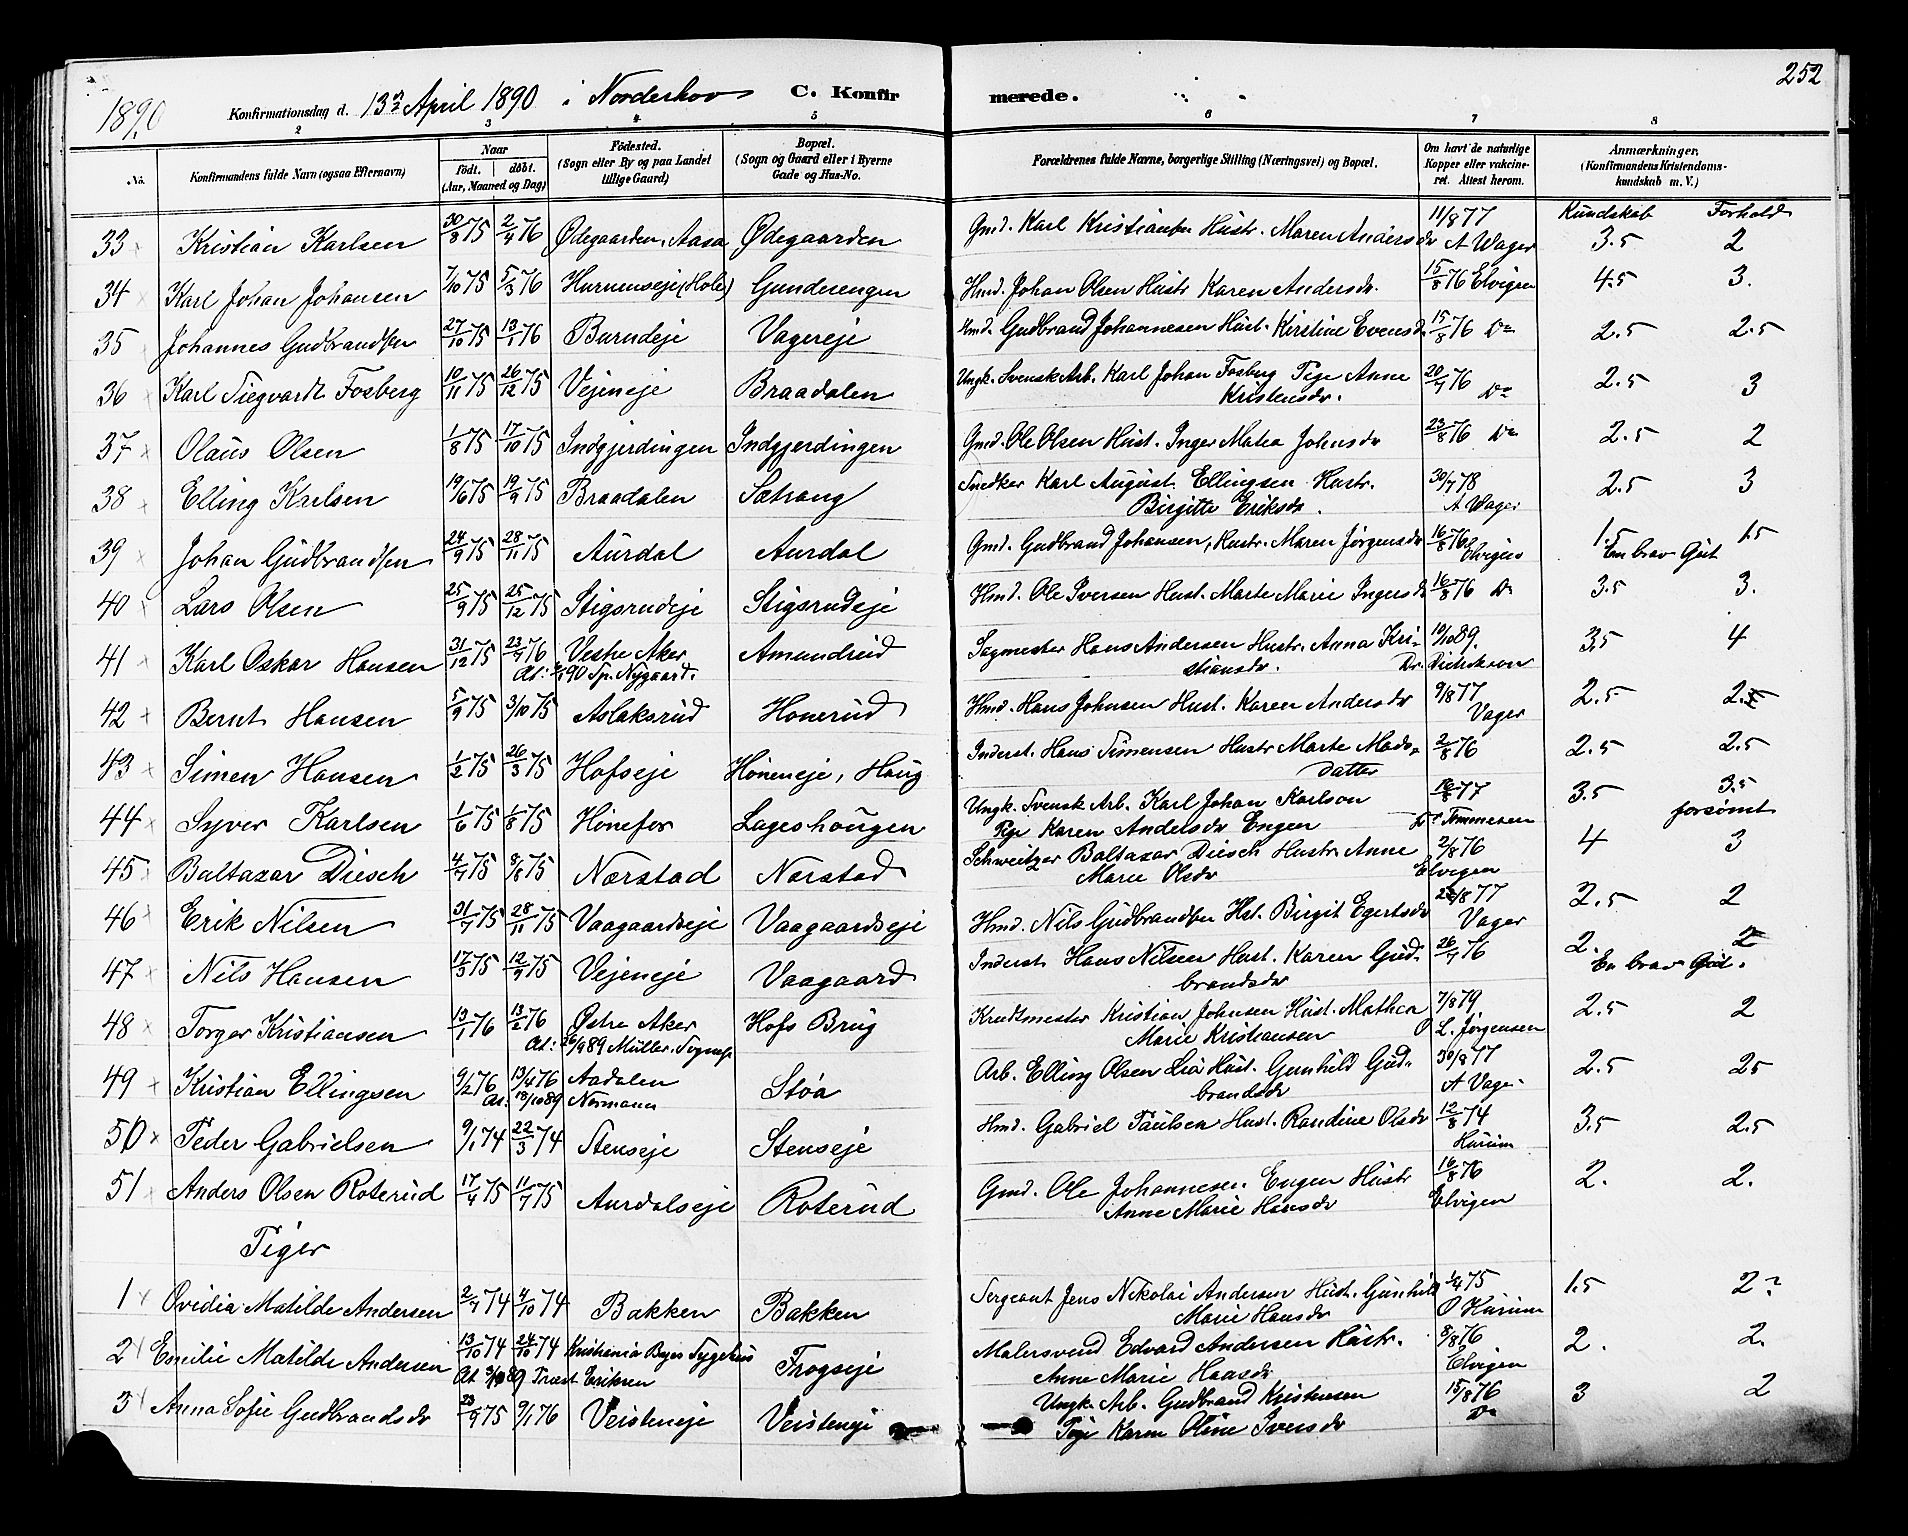 252
1890 Konfirmationsdag d. 13de April 1890 i Norderhov C. Konfirmerede.
2 3 4 5 6 7 8
No. Konfirmandens fulde Navn (ogsaa Efternavn) Naar født. døbt. (Aar, Maaned og Dag) Födested. (Sogn eller By og paa Landet tillige Gaard) Bopæl. (Sogn og Gaard eller i Byerne Gade og Hus-No. Forældrenes fulde Navne, borgerlige Stilling (Næringsvei) og Bopæl. Om havt de naturlige Kopper eller vakcineret. Attest herom. Anmærkninger. (Konfirmandens Kristendomskundskab m. V.)
Kundskab Forhold
33 Kristian Karlsen 30/8 75 2/4 76 Ødegaarden, Aasa Ødegaarden Gmd. Karl Kristiansen Hustr. Maren Andersdr 11/8 77 A Wager 3.5 2
34 Karl Johan Johansen 7/10 75 5/3 76 Hurumseje (Hole) Gunderengen Hmd. Johan Olsen Hustr Karen Andersdr. 15/8 76 Elvigen 4.5 3.
35 Johannes Gudbrandsen 27/10 75 13/1 76 Burudeje Vagereje Hmd. Gudbrand Johannesen Hust. Kirstine Evensdr 15/8 76 Do 2.5 2.5
36 Karl Siegvardt Fosberg 10/11 75 26/12 75 Vejeneje Braadalen Ungk. Svensk Arb. Karl Johan Fosberg Pige Anne 20/7 76 Do 2.5 3
Kristensdr.
37 Olaus Olsen 1/8 75 17/10 75 Indgjerdingen Indgjerdingen Gmd. Ole Olsen Hust. Inger Matea Johnsdr 23/8 76 Do 2.5 2
38 Elling Karlsen 19/6 75 19/9 75 Braadalen Sætrang Snedker Karl August Ellingsen Hustr. 30/7 78 2.5 3
Birgitte Eriksdr. A Vager
39 Johan Gudbrandsen 24/9 75 28/11 75 Aurdal Aurdal Gmd. Gudbrand Johansen, Hustr. Maren Jørgensdr 16/8 76 Elvigen 1.5 1.5
En brav Gut
40 Lars Olsen 25/9 75 25/12 75 Stigsrudeje Stigsrudeje Hmd. Ole Iversen Hust. Marte Marie Ingersdr 16/8 76 Do 3.5 3.
41 Karl Oskar Hansen 31/12 75 23/4 76 Vestre Aker Amundrud Sagmester Hans Andersen Hustr. Anna Kri- 10/10 89. 3.5 4
At: 90 Sp. Nygaard. stiansdr. Dr. Didrikson
42 Bernt Hansen 5/9 75 3/10 75 Aslaksrud Honerud Hmd. Hans Johnsen Hust. Karen Andersdr 9/8 77 Vager 2.5 2.
43 Simen Hansen 1/2 75 26/3 75 Hofseje Höneneje, Haug Inderst. Hans Simensen Hustr Marte Mads- 2/8 76 2.5 2.5
datter
44 Syver Karlsen 1/6 75 1/8 75 Hönefos Lageshougen Ungk. Svensk Arb. Karl Johan Karlson 16/8 77 3.5 3.5
Pige Karen Andersdr Engen Dr Tommesen forsømt
45 Baltazar Diesch 4/7 75 8/8 75 Nærstad Nærstad Schweitzer Baltazar Diesch Hustr. Anne 2/8 76 4 3
Marie Olsdr Elvigen
46 Erik Nilsen 31/7 75 28/11 75 Vaagaardseje Vaagaardseje Hmd. Nils Gudbrandsen Hst. Birgit Egertsdr 8 77 Vager 2.5 2
47 Nils Hansen 17/3 75 12/9 75 Vejeneje Vaagaard Inderst Hans Nilsen Hust. Karen Gud- 26/7 76 2. 2
brandsdr En brav Gut.
48 Torger Kristiansen 13/1 76 13/2 76 Østre Aker Hofs Brug Krudtmester Kristian Johnsen Hust. Mathea 7/8 79 2.5 2
At: 26/9 89 Müller. Sognep. Marie Kristiansen O L. Jørgensen
49 Kristian Ellingsen 9/2 76 13/4 76 Aadalen Støa Arb. Elling Olsen Lia Hust. Gunhild Gud- 30/8 77 2.5 25
At: 18/10 89 Normann brandsdr A Vager
50 Peder Gabrielsen 9/1 74 22/3 74 Stenseje Stenseje Hmd. Gabriel Paulsen Hust. Randine Olsdr 12/8 74 Hurum 3.5 2.5
51 Anders Olsen Roterud 17/4 75 11/7 75 Aurdalseje Roterud Gmd. Ole Johannesen Engen Hustr 16/8 76 2. 2.
Anne Marie Hansdr Elvigen
Piger
1 Ovidia Matilde Andersen 2/7 74 4/10 74 Bakken Bakken Sergeant Jens Nikolai Andersen Hust. Gunhild 1/4 75 1.5 2?
Marie Hansdr O Hurum
2 Emilie Matilde Andersen 13/10 74 24/10 74 Kristiania Byes Sygehus Frogseje Malersvend Edvard Andersen Hustr. 8/8 76 2. 2.
At 89 Præst Eriksen Anne Marie Hansdr Elvigen
3 Anna Sofie Gudbrandsdr 23/9 75 9/1 76 Veisteneje Veisteneje Ungk. Arb. Gudbrand Kristensen 15/8 76 3 2
Pige Karen Oline Iversdr Do